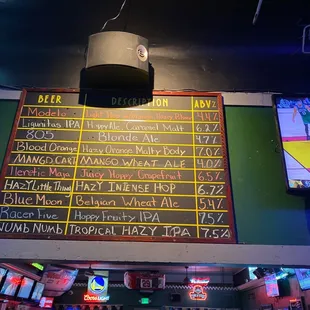 BEER DESCRIPTION ABV%
Modelo 4.4%
Lagunitas IPA Hoppy Ale Caramel Malt 6.2%
805 Blonde Ale 4.7%
Blood Orange Hazy Orange Malty Body 7.0%
MANGO CART MANGO WHEAT ALE 4.0%
Heretic Maja Juicy Hoppy Grapefruit 6.5%
HAZY Little Thing HAZY INTENSE HOP 6.7%
Blue Moon Belgian Wheat Ale 5.4%
Racer Five Hoppy Fruity IPA 7.5%
NUMB NUMB TROPICAL HAZY IPA 7.5%